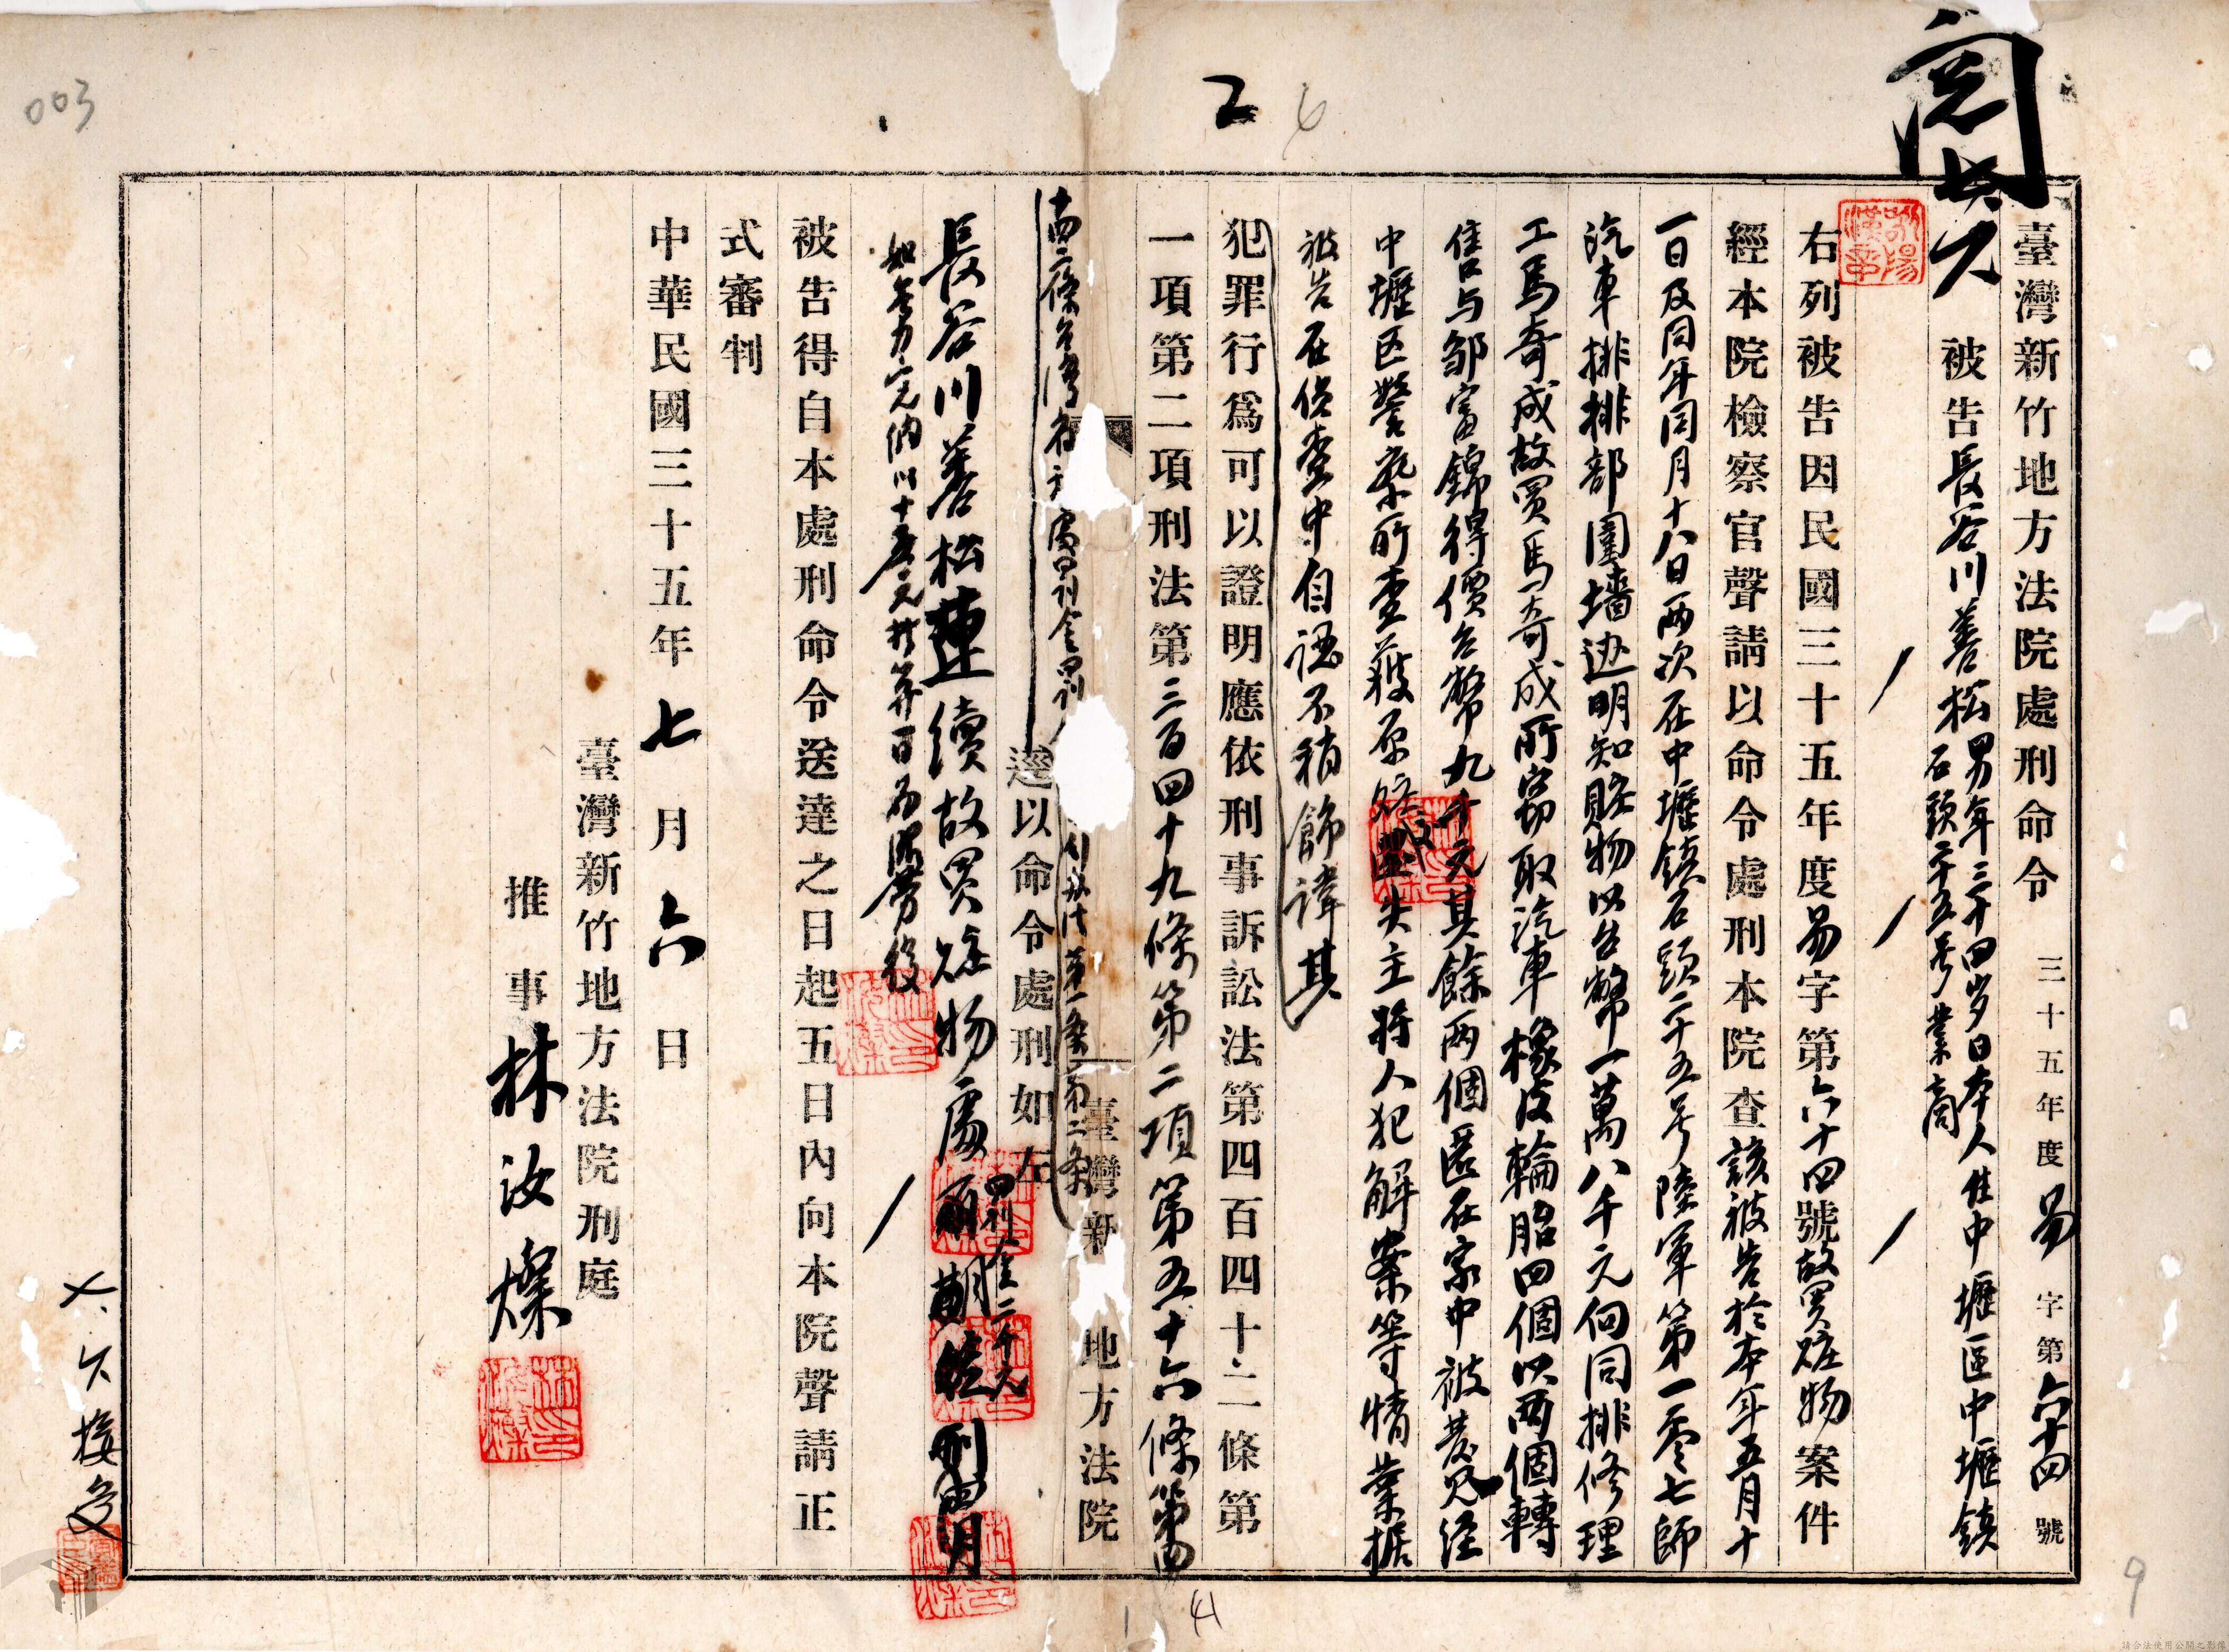 003
2
6
閱
七、八
臺灣新竹地方法院處刑命令 三十五年度易字第六十四號
被告長谷川善松 男年三十四岁日本人住中壢區中壢鎮
石頭二十五号業商
右列被告因民國三十五年度易字第六十四號故買贓物案件
經本院檢察官聲請以命令處刑本院查該被告於本年五月十
一日及同年同月十八日兩次在中壢鎮石頭二十五号陸軍第一零七師
汽車排排部圍墻边明知贓物以台幣一萬八千元向同排修理
工馬奇成故買馬奇成所窃取汽車橡皮輪胎四個以兩個轉
售与邹富錦得價台幣九千元其餘兩個匿在家中被發見经
中壢区警察所查获原贓失主將人犯解案等情業据
被告在侦查中自認不稍飾諱其
犯罪行爲可以證明應依刑事訴訟法第四百四十二條第
一項第二項刑法第三百四十九條第二項第五十六條第四
臺灣新 地方法院
第一条第二条
逕以命令處刑如左
長谷川善松連續故買贓物處
罰金二千元
如無力完納以十五元折算一日易服劳役
被告得自本處刑命令送達之日起五日內向本院聲請正
式審判
中華民國三十五年七月六日
臺灣新竹地方法院刑庭
推事林汝燦
七、八接受
9
請合法使用公開之影像